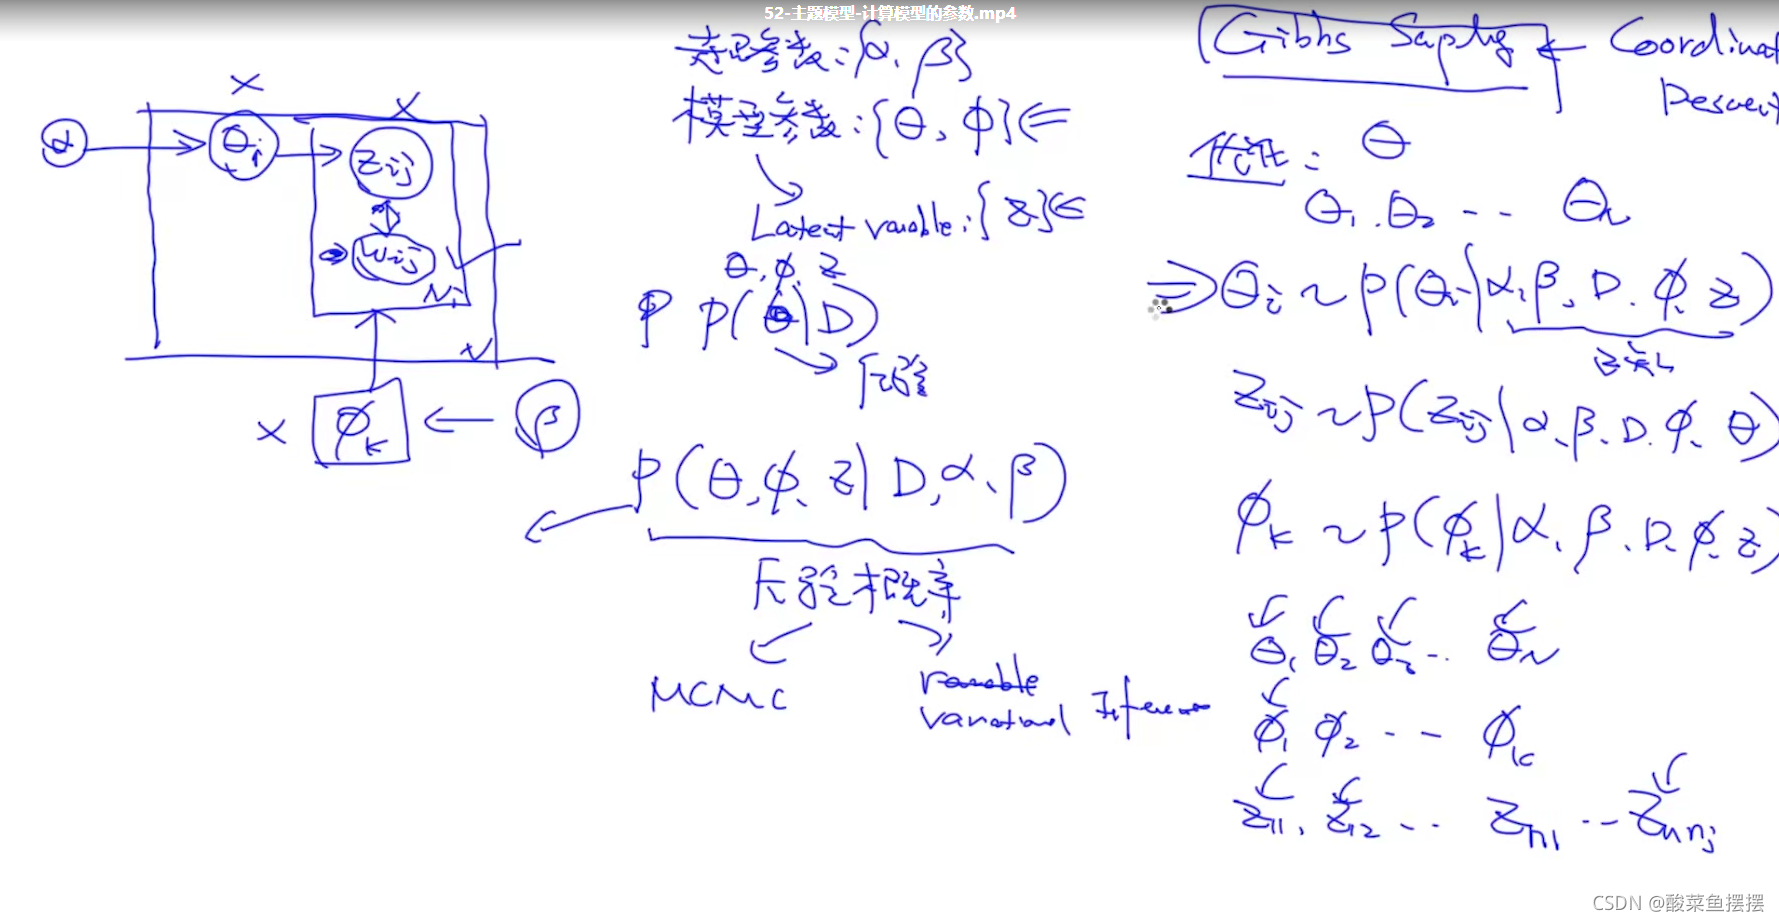 52-主题模型-计算模型的参数.mp4
α
θi
Zij
Wij
Ni
N
φk
β
超参数:{α, β}
模型参数:{θ, φ}
Latent variable:{z}
θ, φ, z
P P(θ|D)
后验
P(θ, φ, z|D, α, β)
后验概率
MCMC
variable
variational Inference
Gibbs Sapling ← Coordinat
Descent
优化: θ
θ1. θ2 -- θN
⇒ θi ~ P(θi|α, β, D. φ, z)
已知
Zij ~ P(Zij|α, β, D. φ, θ)
φk ~ P(φk|α, β, D, φ, z)
θ1 θ2 θi -- θN
φ1 φ2 --- φk
Z11, Z12 -- Zn1 -- Znnj
CSDN @酸菜鱼摆摆